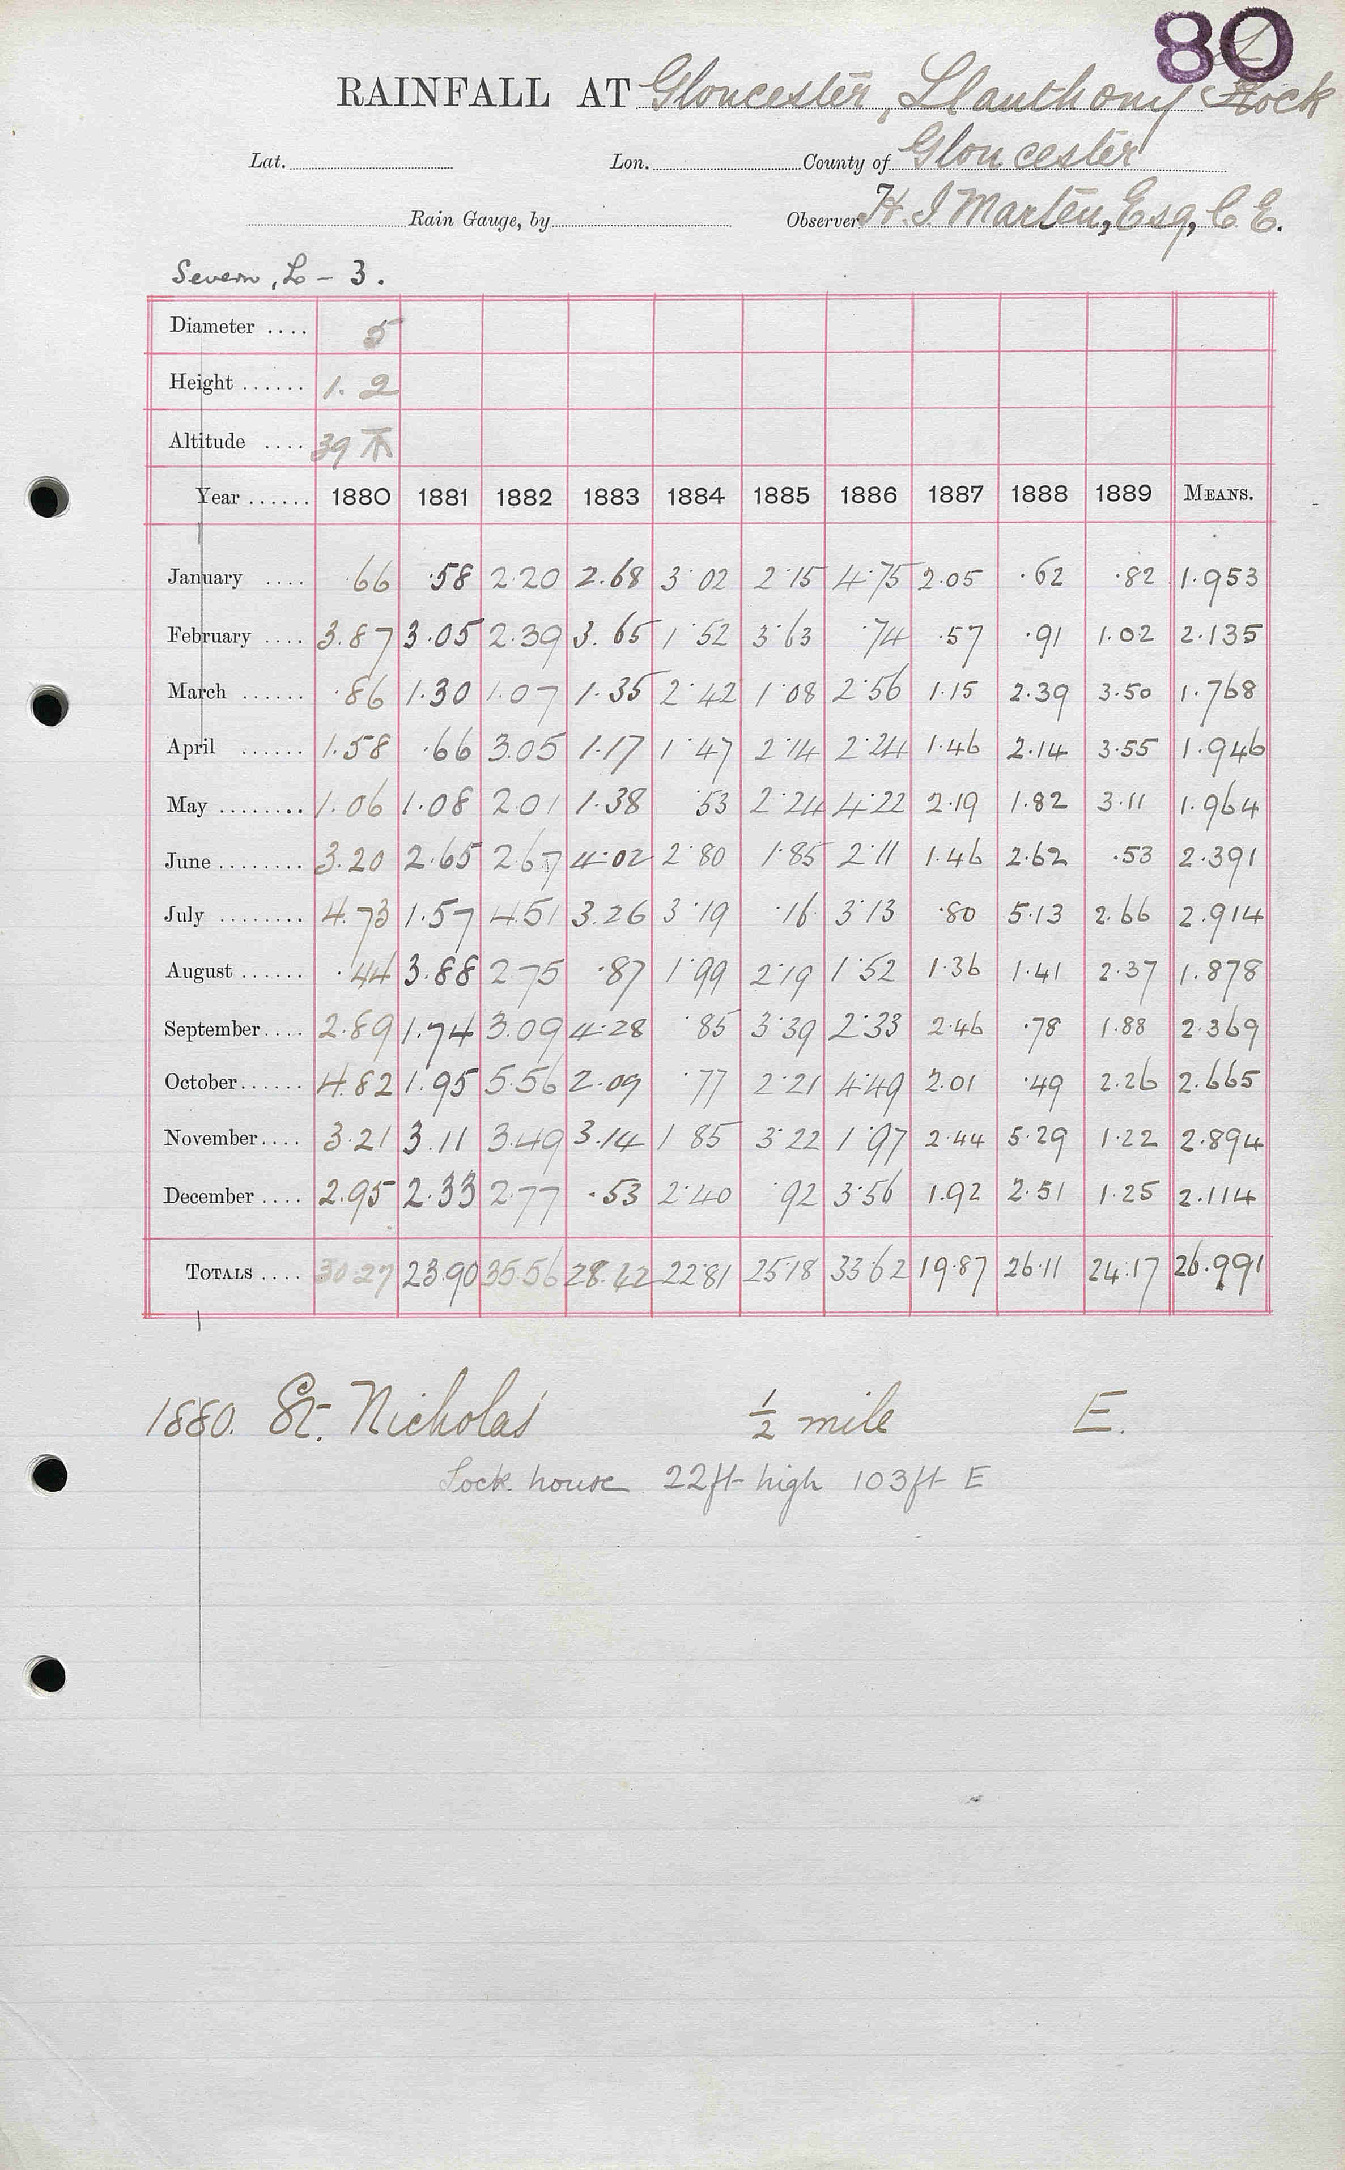 80
RAINFALL AT Gloucester, Llanthony Lock
Lat. Lon. County of Gloucester
Rain Gauge, by Observer H. J. Marten, Esq, C. E.
Severn, L - 3.
Diameter .... 5
Height ...... 1. 2
Altitude .... 39
Year ...... 1880 1881 1882 1883 1884 1885 1886 1887 1888 1889 MEANS.
January .... .66 .58 2.20 2.68 3.02 2.15 4.75 2.05 .62 .82 1.953
February .... 3.87 3.05 2.39 3.65 1.52 3.63 .74 .57 .91 1.02 2.135
March ...... .86 1.30 1.07 1.35 2.42 1.08 2.56 1.15 2.39 3.50 1.768
April ...... 1.58 .66 3.05 1.17 1.47 2.14 2.24 1.46 2.14 3.55 1.946
May ........ 1.06 1.08 2.01 1.38 .53 2.24 4.22 2.19 1.82 3.11 1.964
June ........ 3.20 2.65 2.67 4.02 2.80 1.85 2.11 1.46 2.62 .53 2.391
July ........ 4.73 1.57 4.51 3.26 3.19 .16 3.13 .80 5.13 2.66 2.914
August ...... .44 3.88 2.75 .87 1.99 2.19 1.52 1.36 1.41 2.37 1.878
September.... 2.89 1.74 3.09 4.28 .85 3.39 2.33 2.46 .78 1.88 2.369
October...... 4.82 1.95 5.56 2.09 .77 2.21 4.49 2.01 .49 2.26 2.665
November.... 3.21 3.11 3.49 3.14 1.85 3.22 1.97 2.44 5.29 1.22 2.894
December .... 2.95 2.33 2.77 .53 2.40 .92 3.56 1.92 2.51 1.25 2.114
TOTALS .... 30.27 23.90 35.56 28.42 22.81 25.18 33.62 19.87 26.11 24.17 26.991
1880. St. Nicholas' 1/2 mile E.
Lock house 22ft high 103ft E